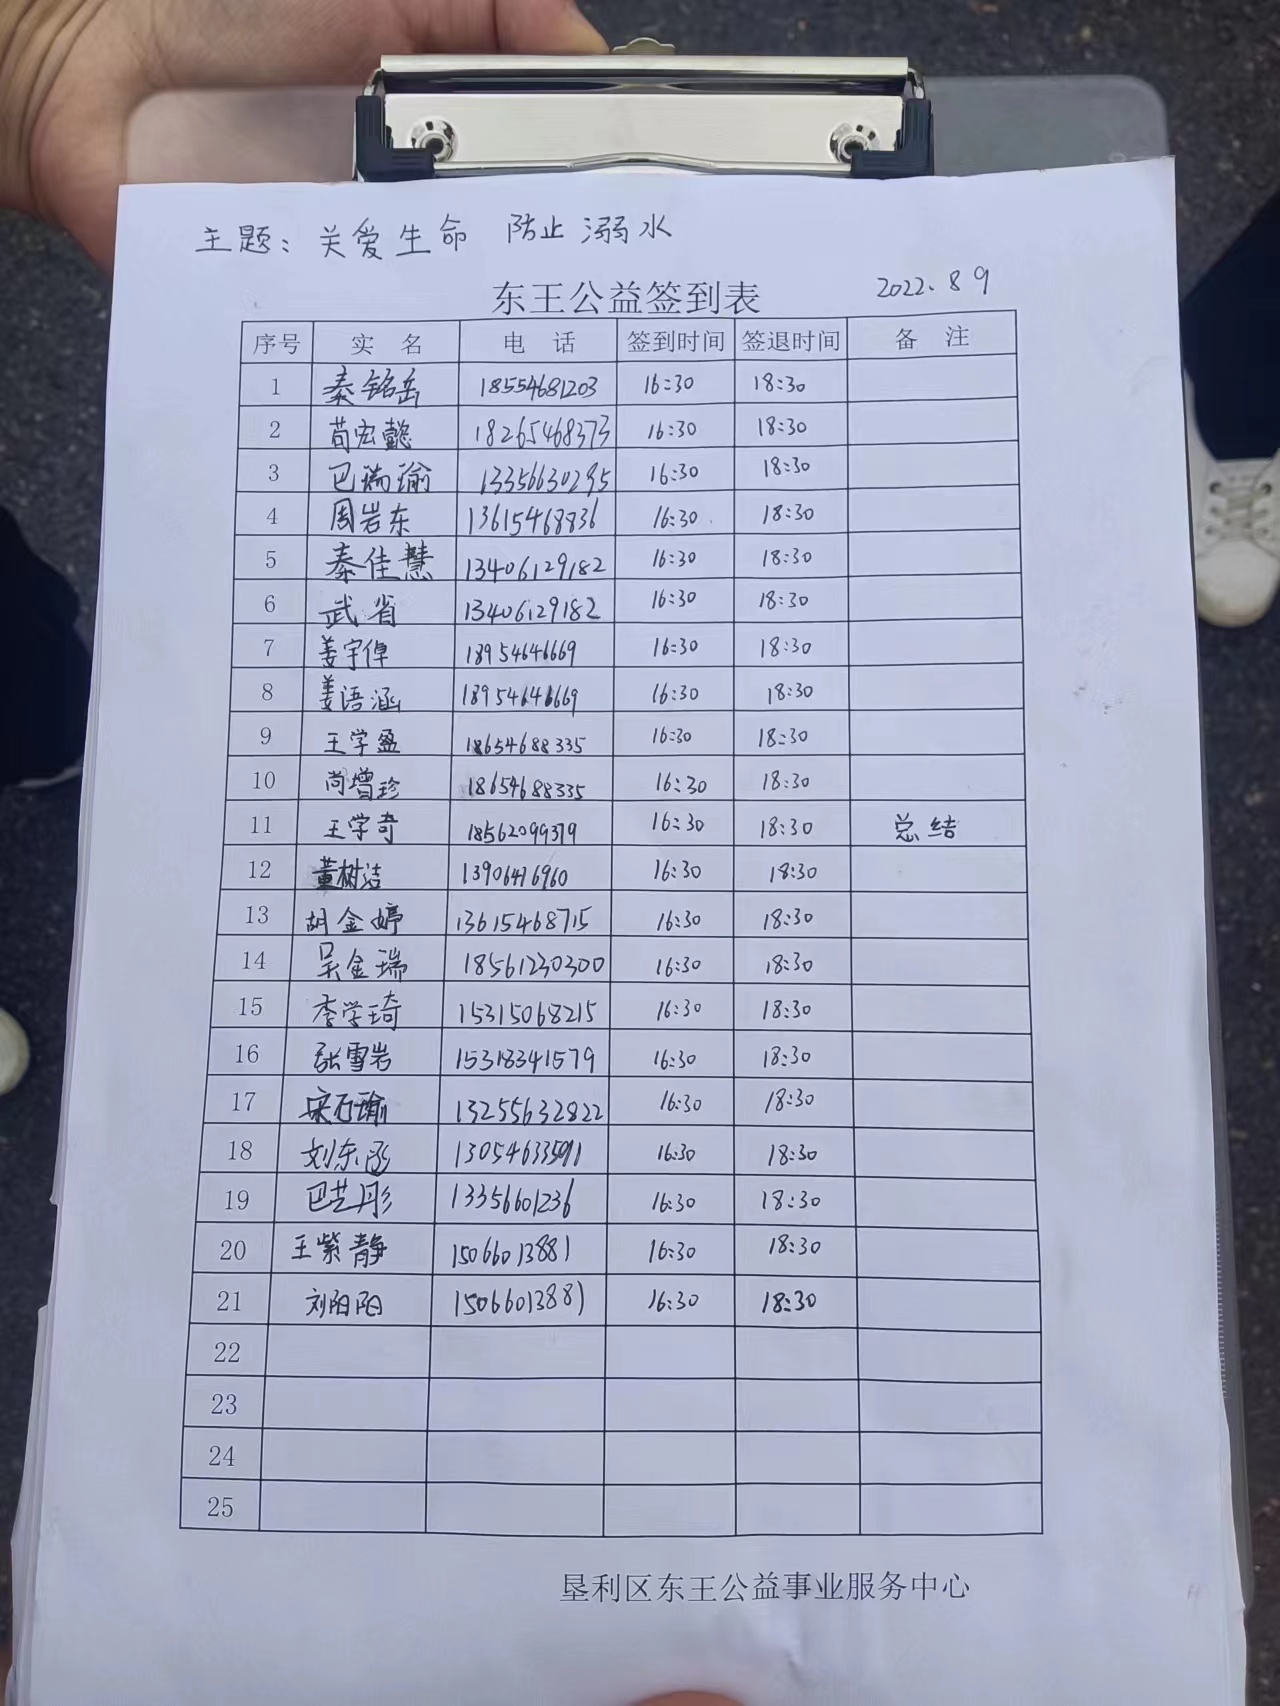 主题：关爱生命 防止溺水
东王公益签到表 2022.8 9
序号 实名 电话 签到时间 签退时间 备注
1 秦铭岳 18554681203 16:30 18:30
2 苟宏懿 18265468373 16:30 18:30
3 巴瑞瑜 13356630295 16:30 18:30
4 周岩东 13615468836 16:30 18:30
5 秦佳慧 13406129182 16:30 18:30
6 武省 13406129182 16:30 18:30
7 姜宇倬 18954646669 16:30 18:30
8 姜语涵 18954646669 16:30 18:30
9 王学盈 18654688335 16:30 18:30
10 尚增珍 18654688335 16:30 18:30
11 王学奇 18562099379 16:30 18:30 总结
12 董树洁 13906416960 16:30 18:30
13 胡金婷 13615468715 16:30 18:30
14 吴金瑞 18561230300 16:30 18:30
15 李学琦 15315068215 16:30 18:30
16 张雪岩 15318341579 16:30 18:30
17 宋石瑜 13255632822 16:30 18:30
18 刘东 13054633591 16:30 18:30
19 巴艺彤 13356601236 16:30 18:30
20 王紫静 15066013881 16:30 18:30
21 刘阳阳 15066013881 16:30 18:30
22
23
24
25
垦利区东王公益事业服务中心